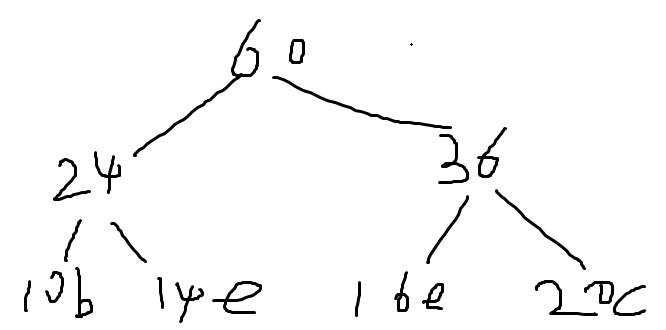 60
24 36
10b 14e 16e 20c